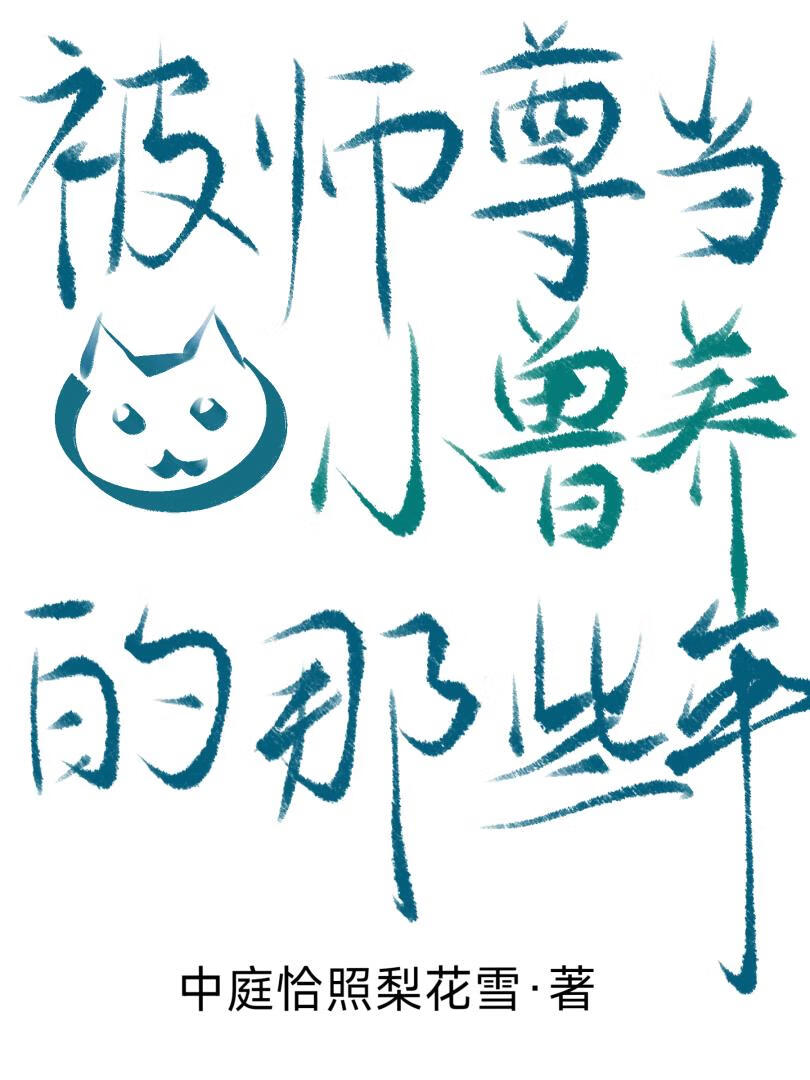 被师尊当
小兽养
的那些年
中庭恰照梨花雪·著